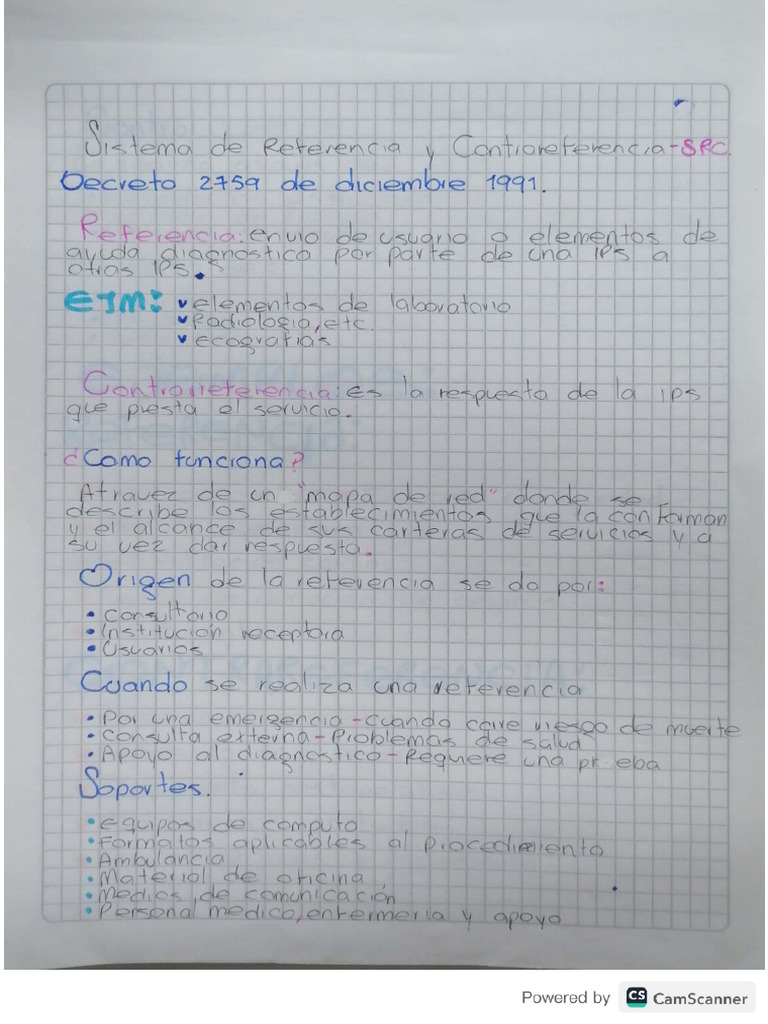 Sistema de Referencia y Contrareferencia-SRC.
Decreto 2759 de diciembre 1991.
Referencia: envio de usuario o elementos de
ayuda diagnostico por parte de una IPS a
otras IPS.
EJM: elementos de laboratorio
Radiologia, etc.
ecografias
Contrarreferencia: es la respuesta de la IPS
que presta el servicio.
¿Como funciona?
Atravez de un "mapa de red" donde se
describe los establecimientos que la conforman
y el alcance de sus carteras de servicios y a
su vez dar respuesta.
Origen de la referencia se da por:
• Consultorio
• Institución receptora
• Usuarios
Cuando se realiza una referencia
• Por una emergencia - cuando corre riesgo de muerte
• Consulta externa - Problemas de salud
• Apoyo al diagnostico - Requiere una prueba
Soportes.
• equipos de computo
• Formatos aplicables al procedimiento
• Ambulancia
• Material de oficina
• Medios de comunicación
• Personal medico, enfermeria y apoyo
Powered by CS CamScanner